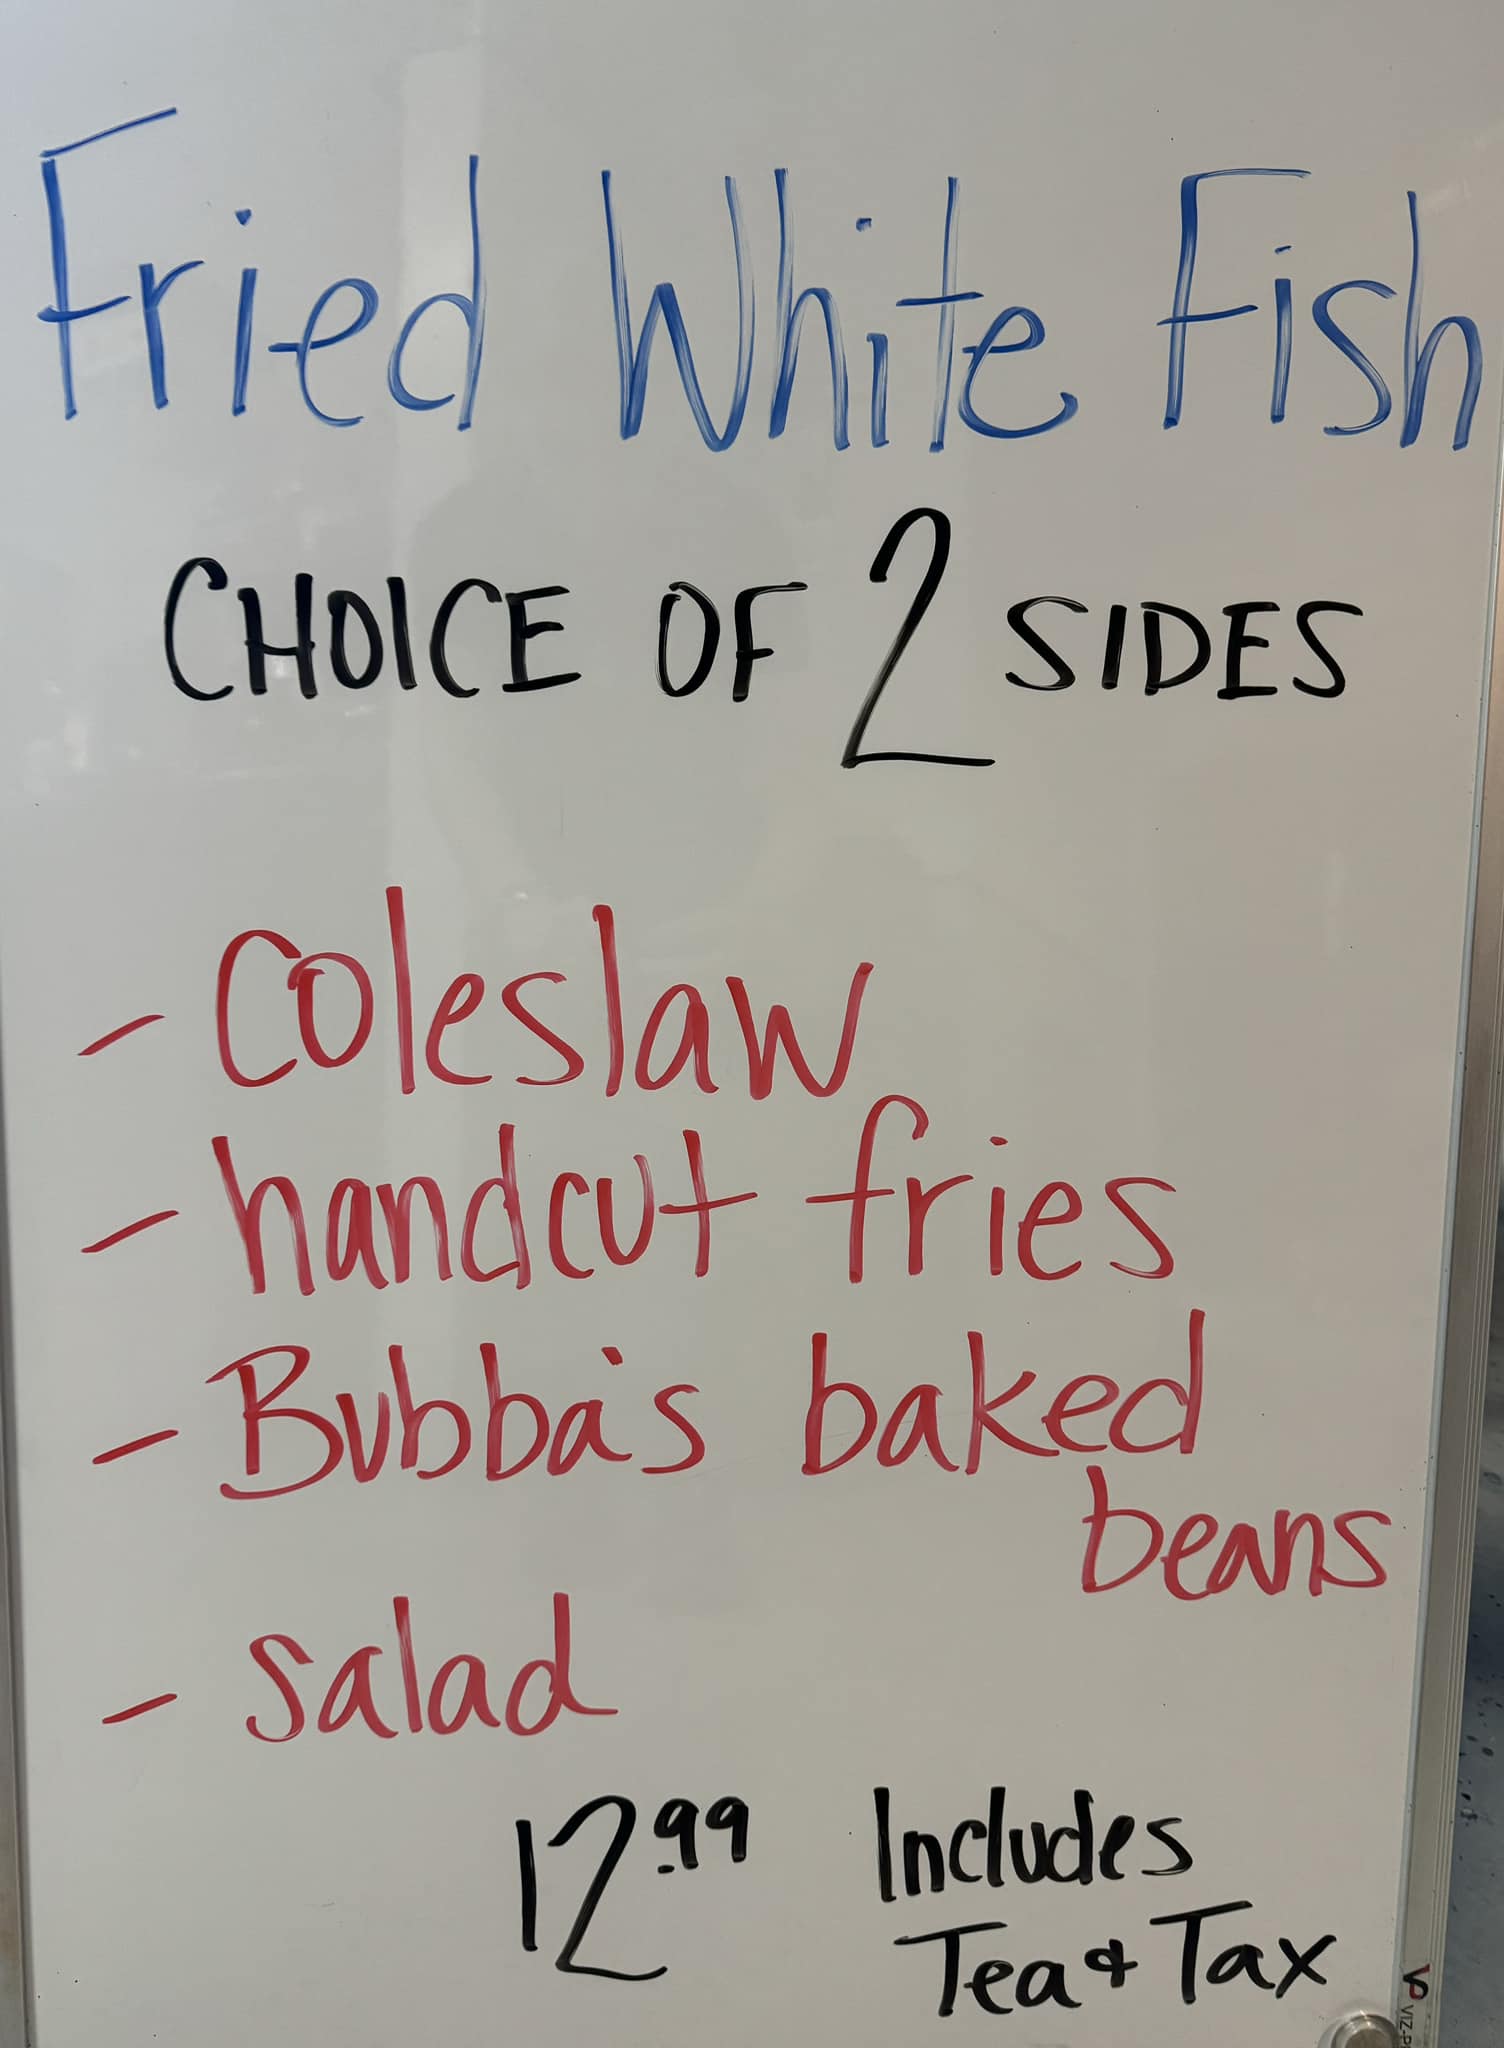 Fried White Fish
CHOICE OF 2 SIDES
- Coleslaw
- handcut fries
- Bubba's baked
beans
- Salad
12.99 Includes
Tea & Tax